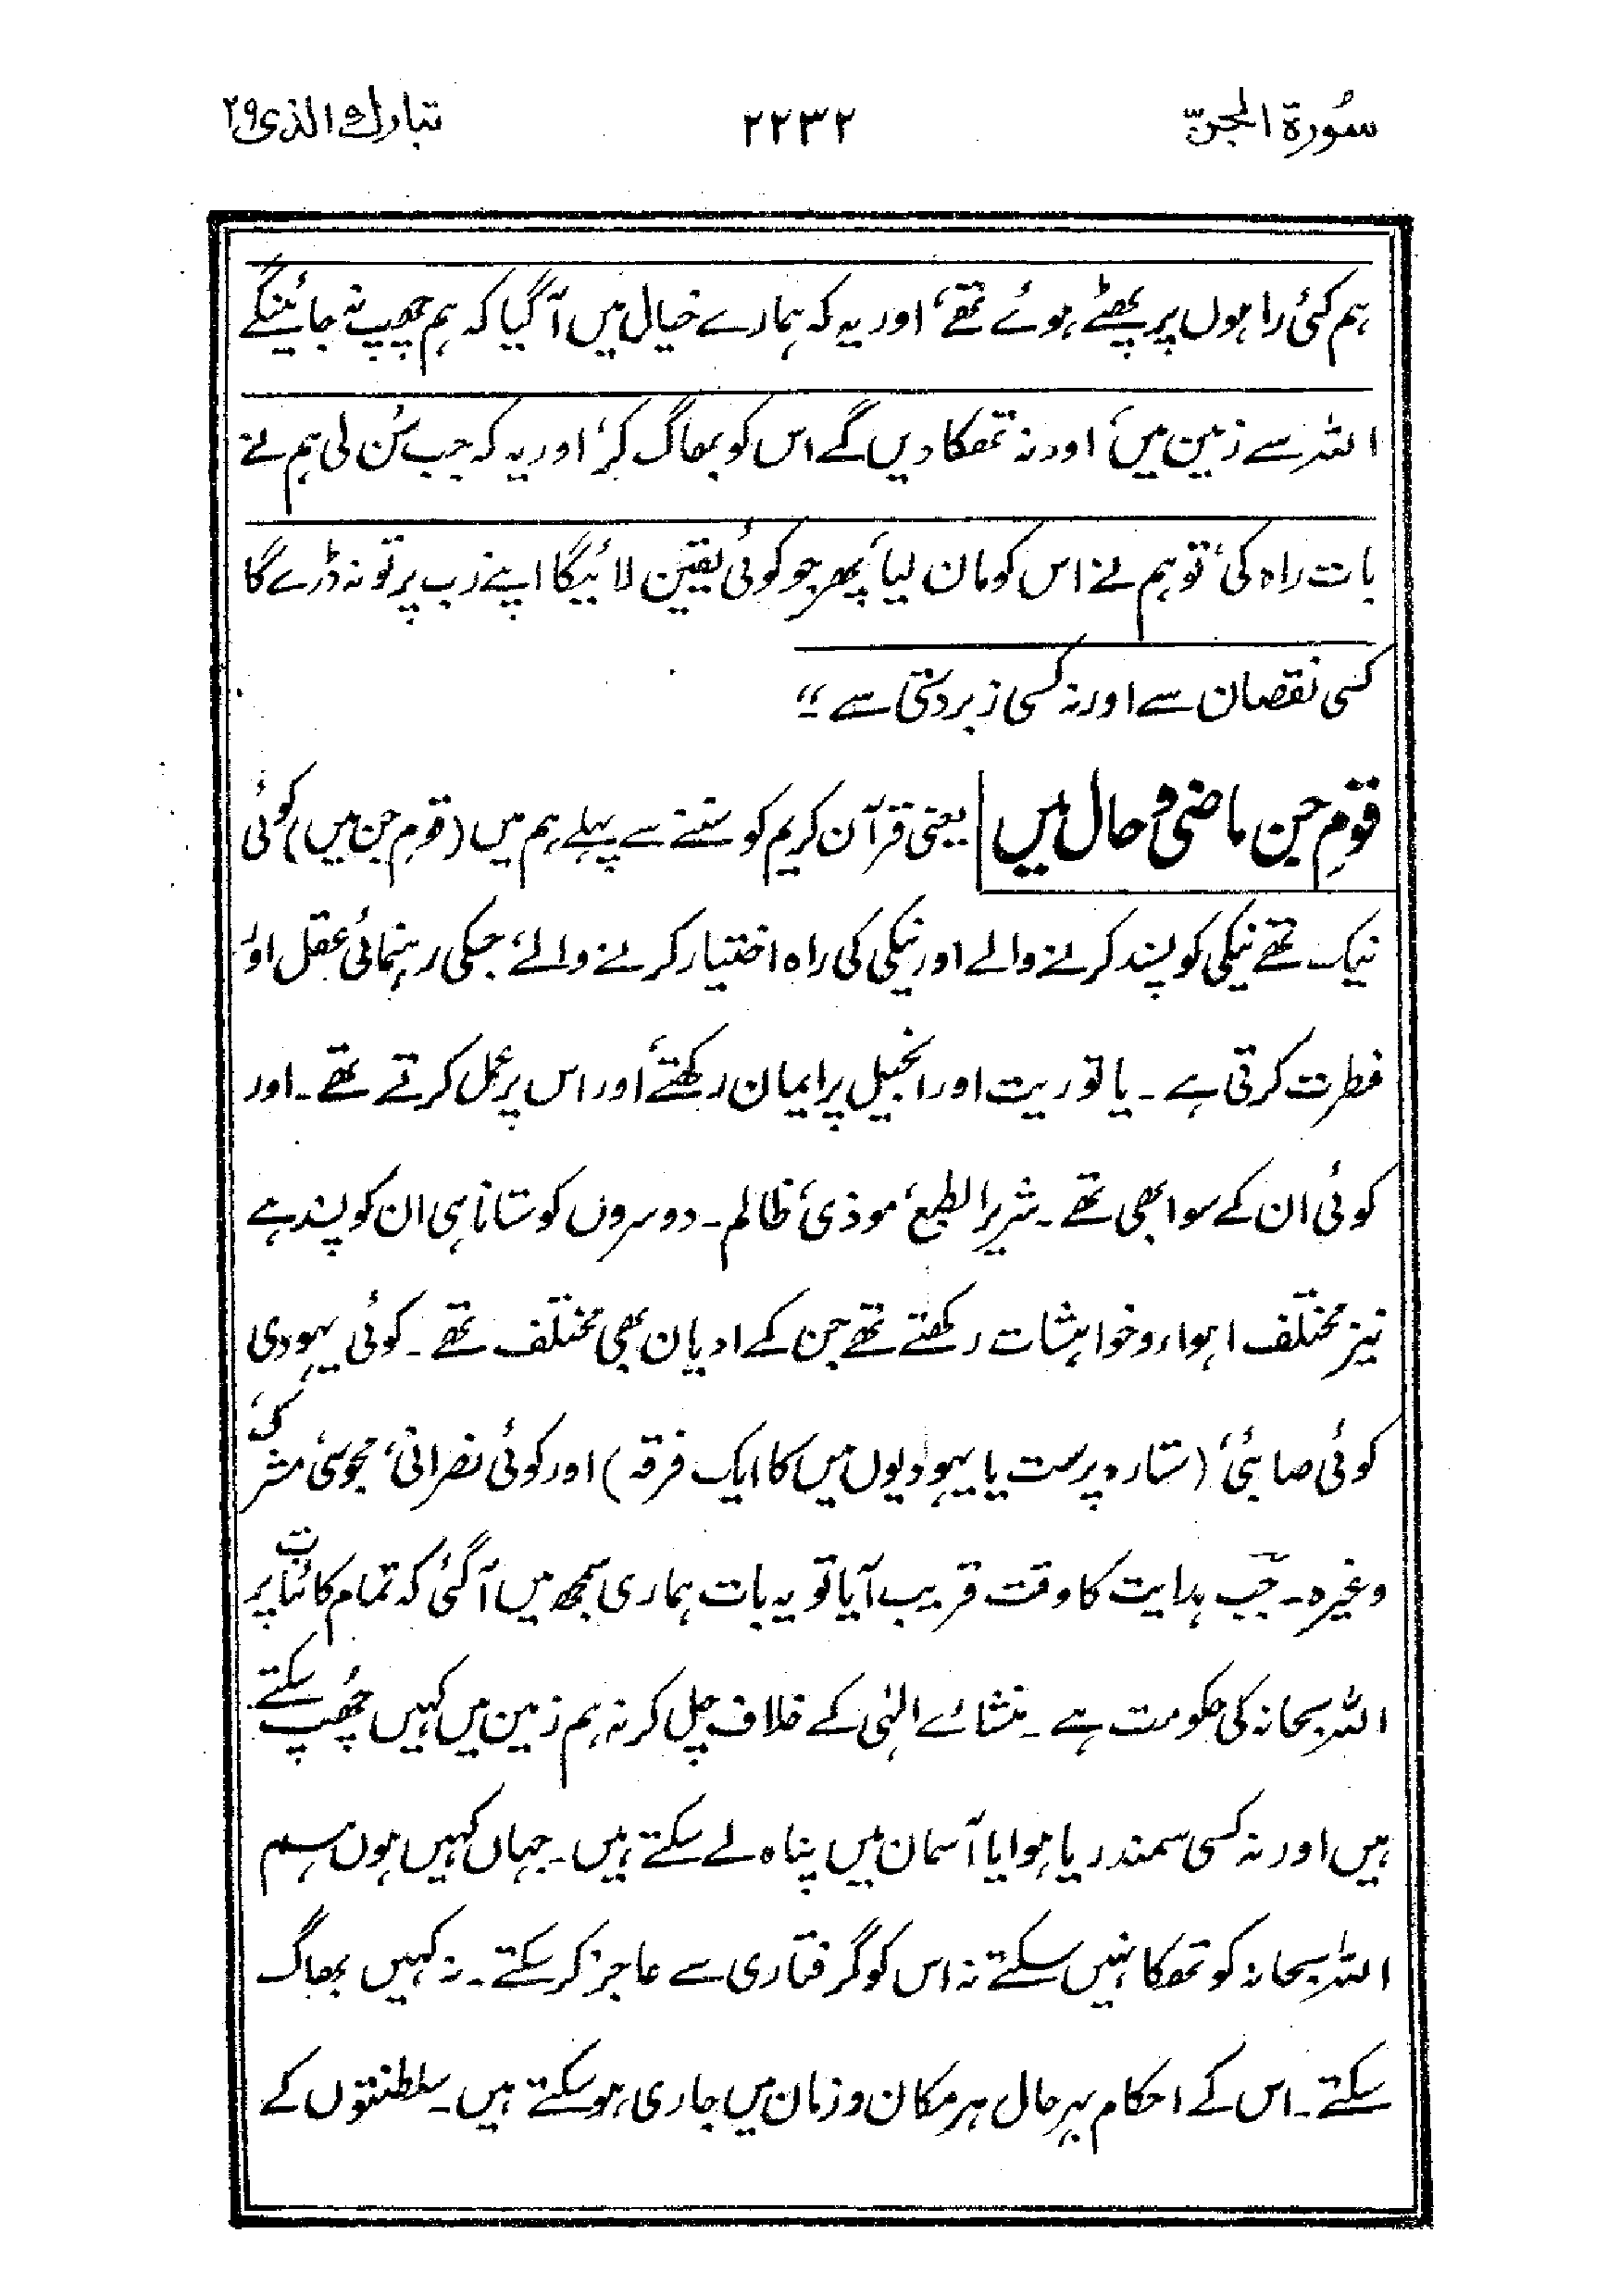 سُورة الجنّ
٢٢٣٢
تبارك الذى ٢٩
ہم کئی راہوں پر پھٹے ہوئے تھے، اور یہ کہ ہمارے خیال میں آگیا کہ ہم چھپ نہ جائینگے
اللہ سے زمین میں، اور نہ تھکا دیں گے اس کو بھاگ کر، اور یہ کہ جب سُن لی ہم نے
بات راہ کی، تو ہم نے اس کو مان لیا، پھر جو کوئی یقین لائیگا اپنے رب پر تو نہ ڈرے گا
کسی نقصان سے اور نہ کسی زبردستی سے "
قومِ جن ماضی و حال میں یعنی قرآن کریم کو سننے سے پہلے ہم میں (قومِ جن میں) کوئی
نیک تھے نیکی کو پسند کرنے والے اور نیکی کی راہ اختیار کرنے والے، جسکی رہنمائی عقل اور
فطرت کرتی ہے ۔ یا توریت اور انجیل پر ایمان رکھتے، اور اس پر عمل کرتے تھے ۔ اور
کوئی ان کے سوا بھی تھے ۔ شریر الطبع، موذی، ظالم ۔ دوسروں کو ستانا ہی ان کو پسند ہے
نیز مختلف اہواء و خواہشات رکھتے تھے جن کے ادیان بھی مختلف تھے ۔ کوئی یہودی
کوئی صابئی، (ستارہ پرست یا یہودیوں میں کا ایک فرقہ) اور کوئی نصرانی، مجوسی، مشرک،
وغیرہ ۔ جب ہدایت کا وقت قریب آیا تو یہ بات ہماری سمجھ میں آگئی کہ تمام کائنات پر
اللہ سبحانہ کی حکومت ہے ۔ منشائے الٰہی کے خلاف چل کر نہ ہم زمین میں کہیں چُھپ سکتے
ہیں اور نہ کسی سمندر یا ہوا یا آسمان میں پناہ لے سکتے ہیں ۔ جہاں کہیں ہوں ہم
اللہ سبحانہ کو تھکا نہیں سکتے نہ اس کو گرفتاری سے عاجز کر سکتے ۔ نہ کہیں بھاگ
سکتے ۔ اس کے احکام بہرحال ہر مکان و زمان میں جاری ہو سکتے ہیں ۔ سلطنتوں کے